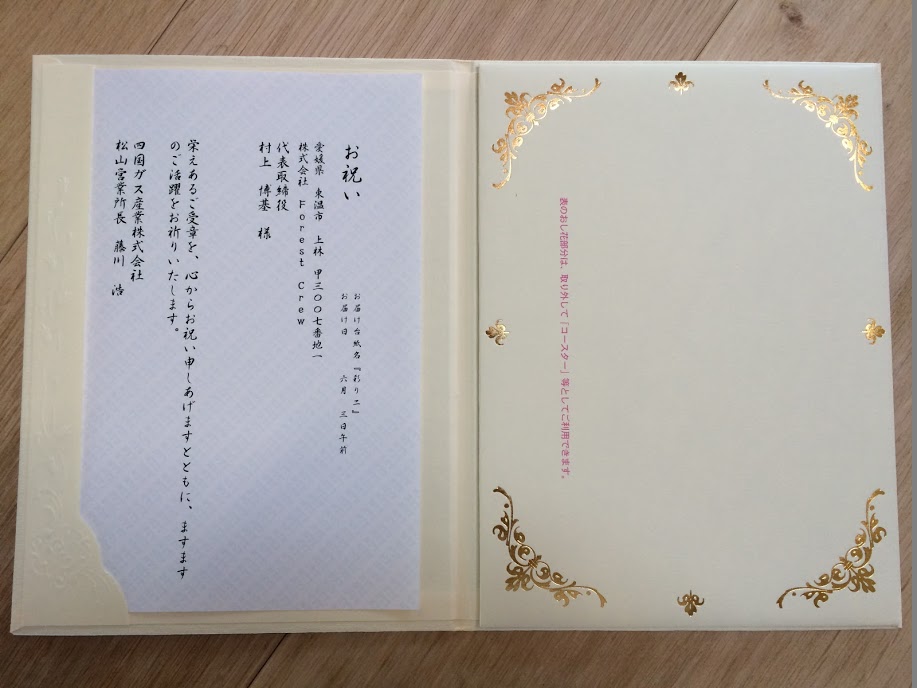 表のおし花部分は、取り外して「コースター」等としてご利用できます。
お届け台紙名『彩り二』
お届け日　六月　三日午前
お祝い
愛媛県　東温市　上林　甲三〇〇七番地一
株式会社　Ｆｏｒｅｓｔ　Ｃｒｅｗ
代表取締役
村上　博基　様
栄えあるご受章を、心からお祝い申しあげますとともに、ますます
のご活躍をお祈りいたします。
四国ガス産業株式会社
松山営業所長　藤川　浩